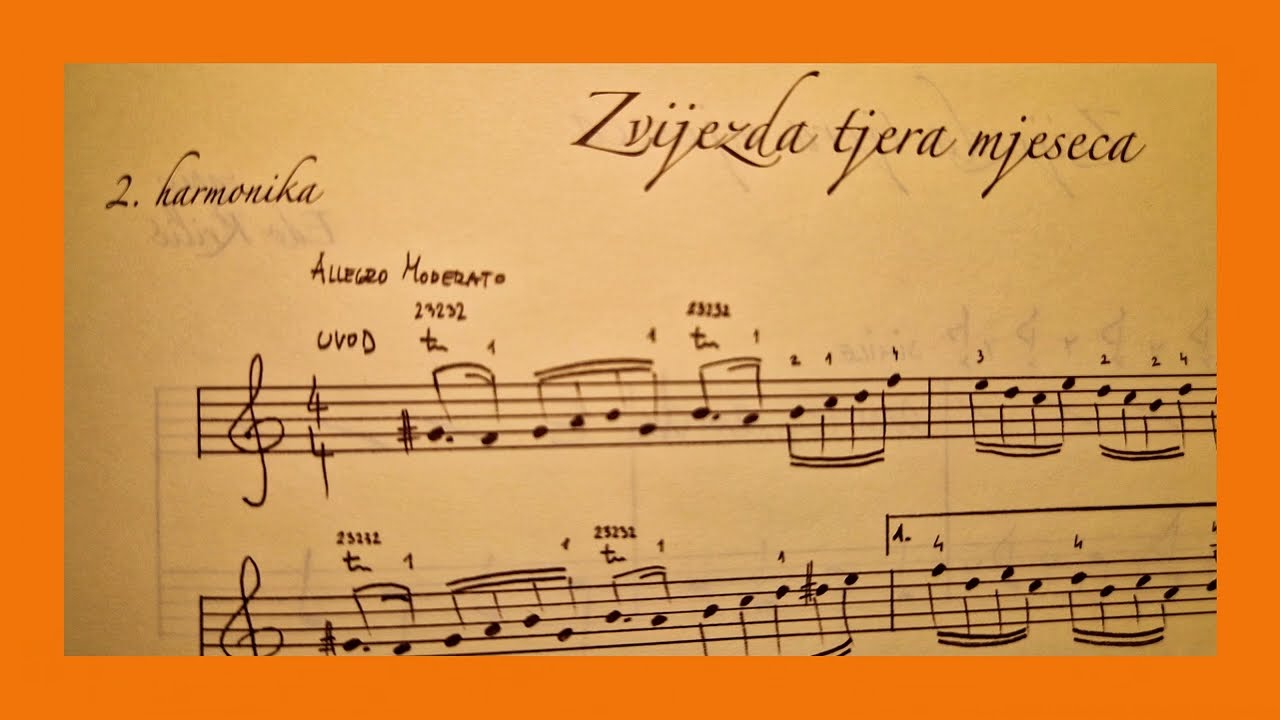 Zvijezda tjera mjeseca
2. harmonika
ALLEGRO MODERATO
23232 23232
UVOD tr 1 1 tr 1 2 1 4 3 2 2 4
4
4
23232 23232
tr 1 1 tr 1 1 1. 4 4